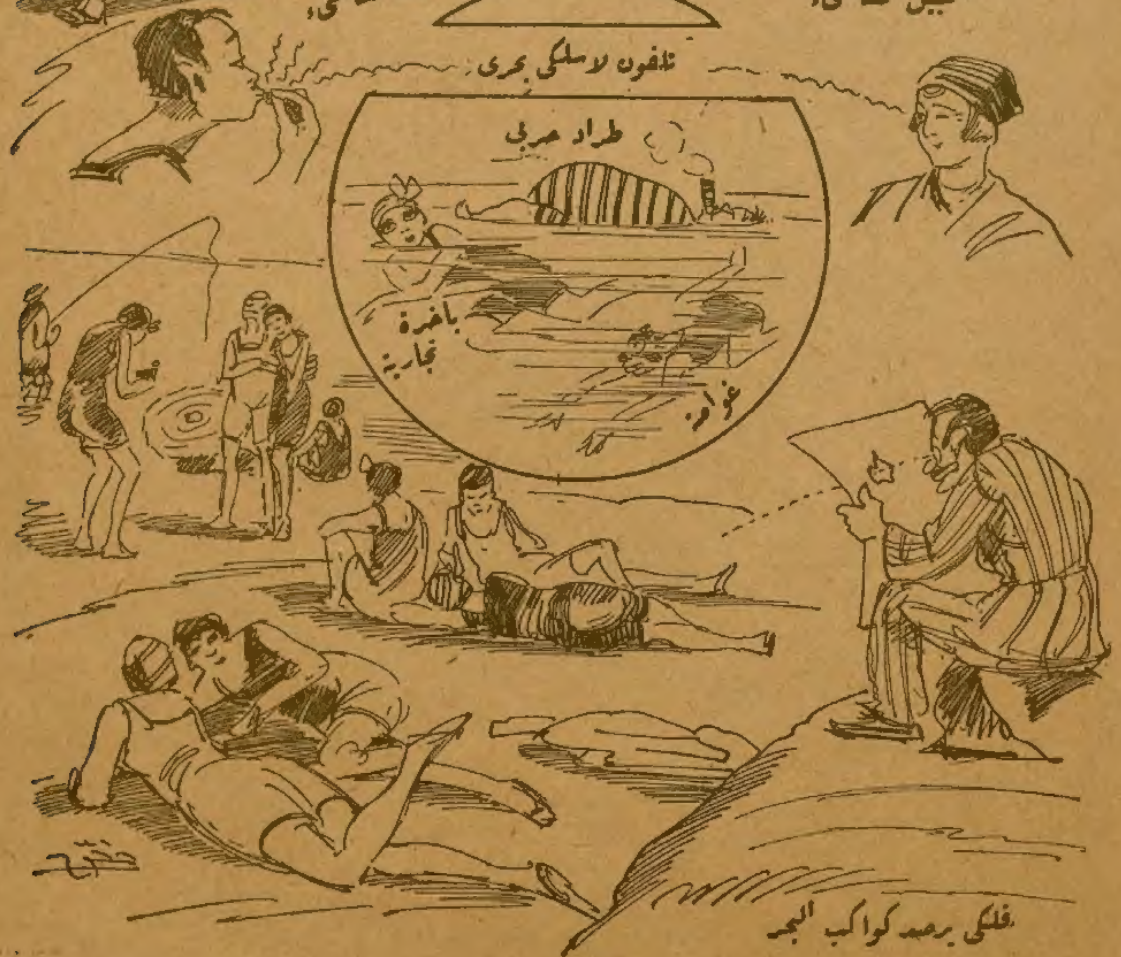 تلفون لاسلكى بحرى
طراد حربى
باخرة
تجارية
غواصة
فلكى يرصد كواكب البحر